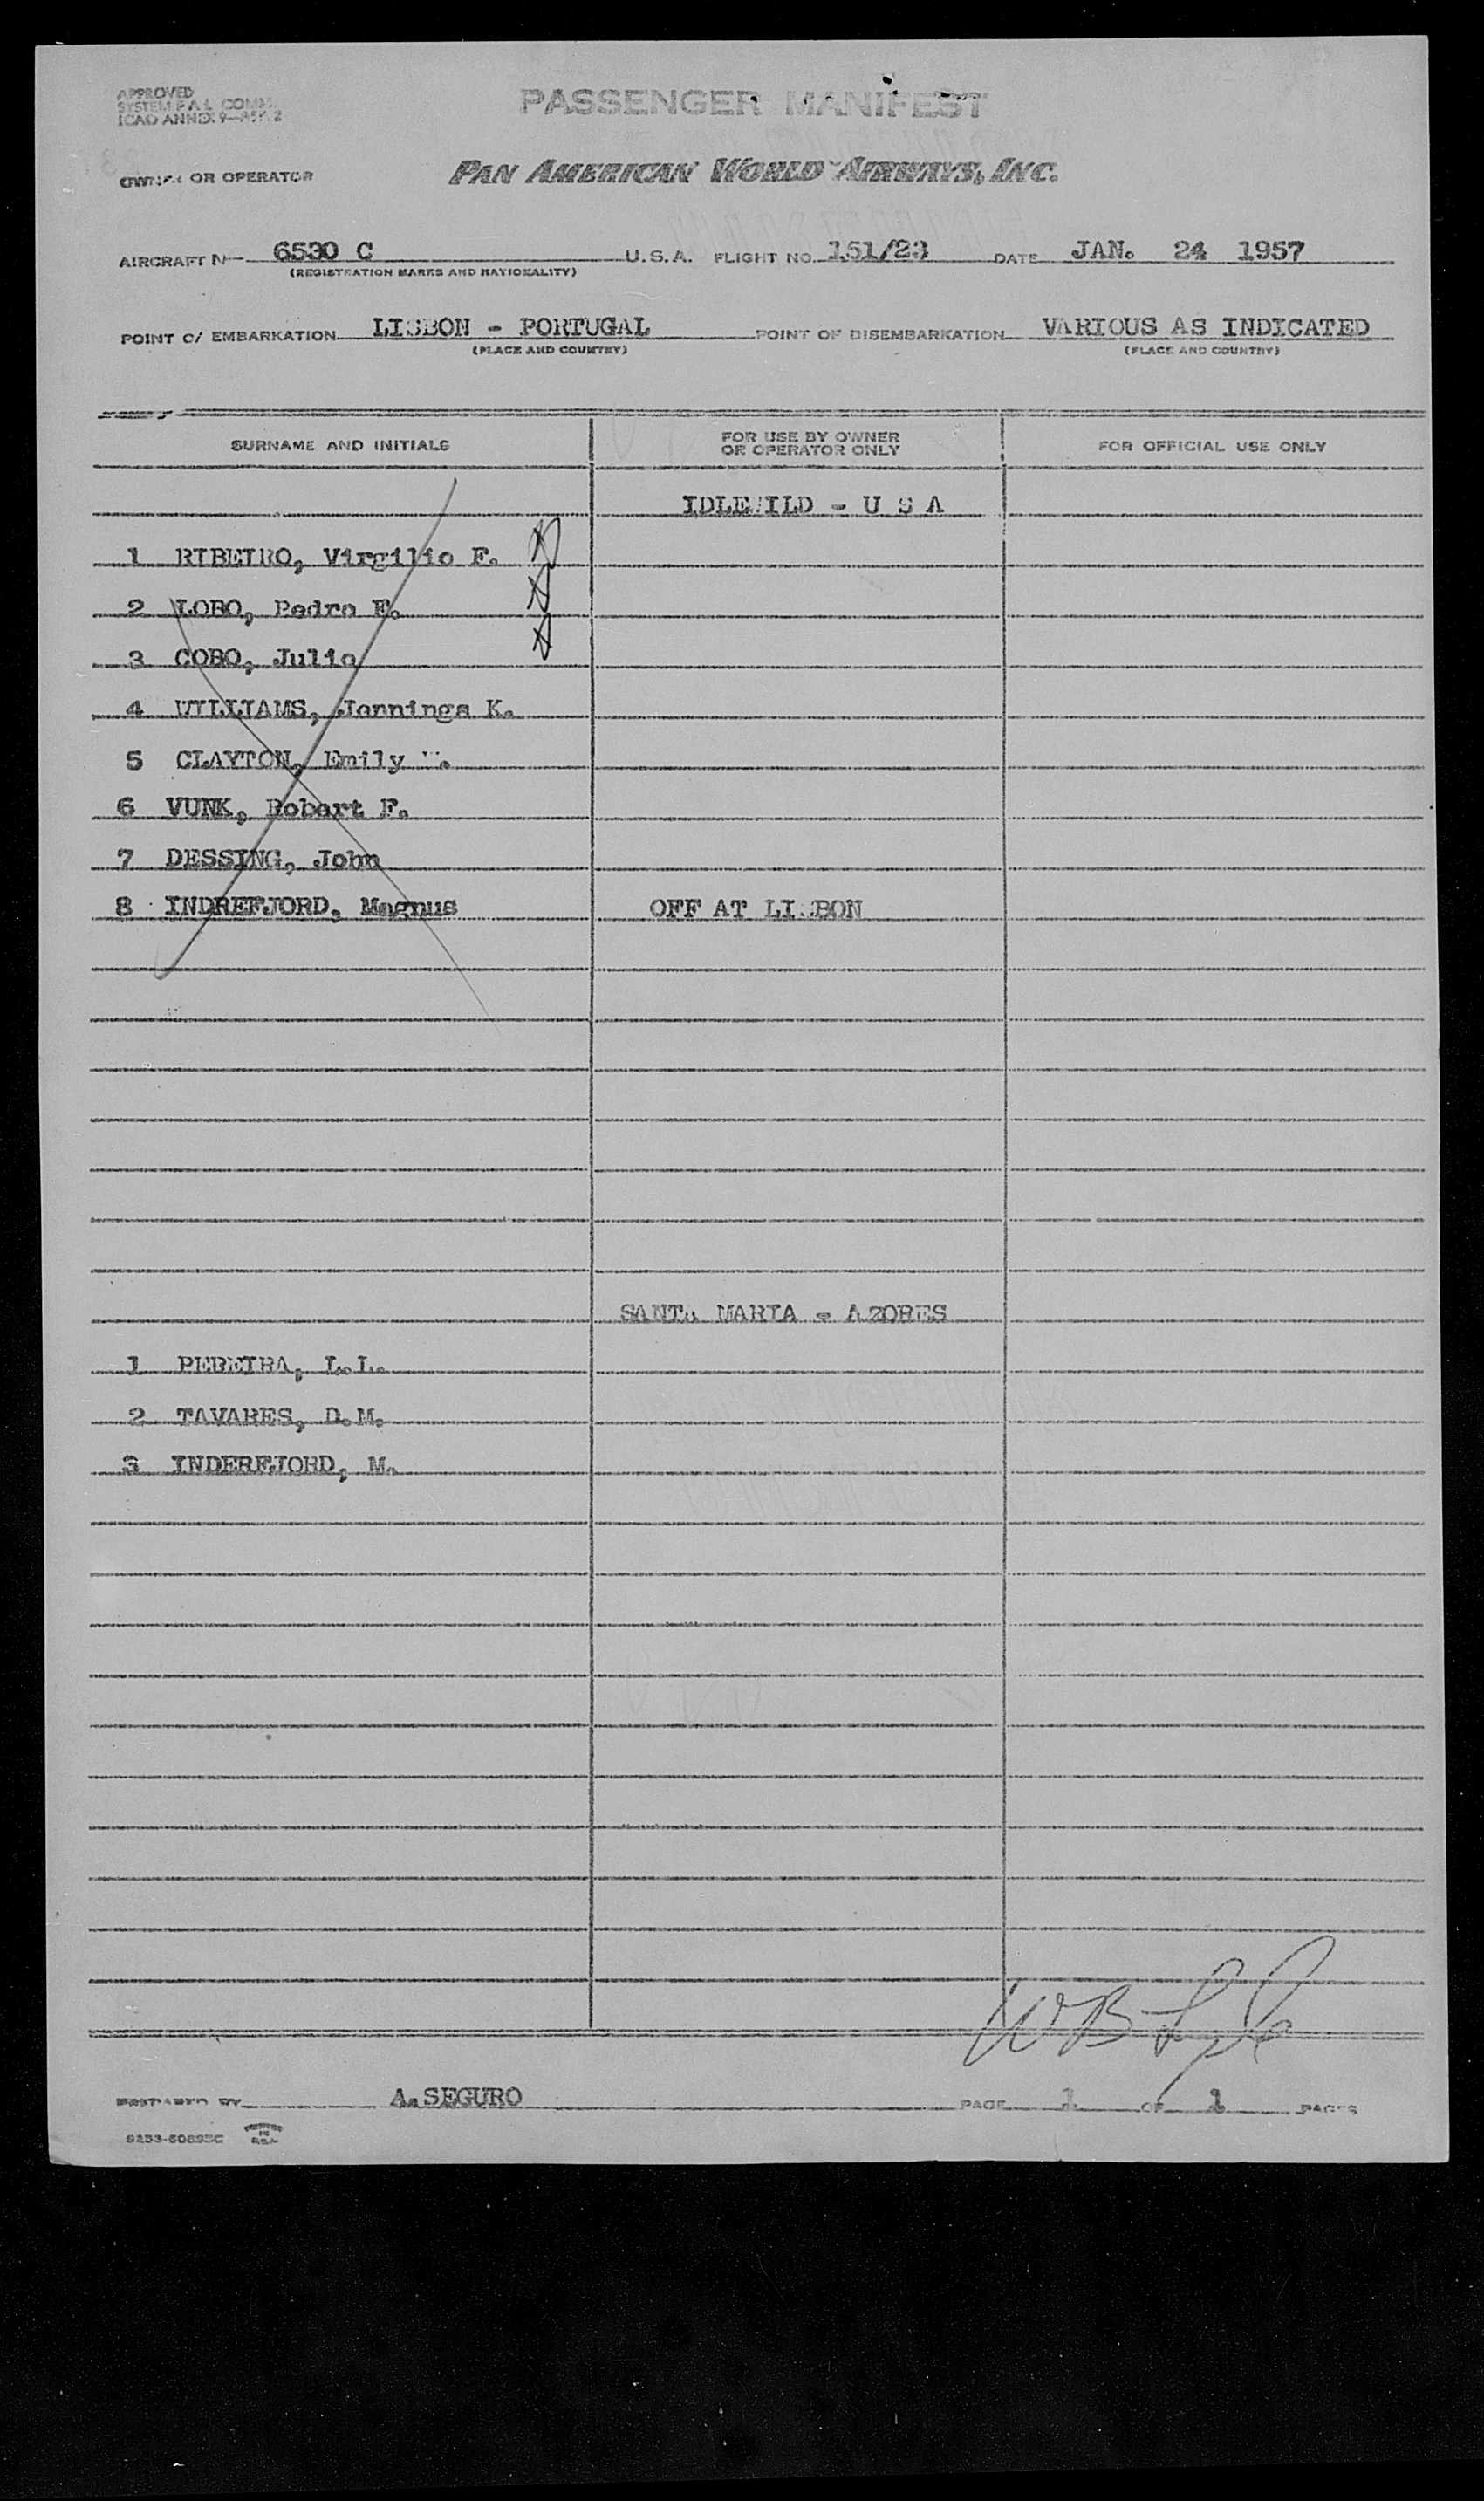 APPROVED
SYSTEM F A L COMM.
ICAO ANNEX 9—
PASSENGER MANIFEST
OWNER OR OPERATOR PAN AMERICAN WORLD AIRWAYS, INC.
AIRCRAFT N— 6530 C U.S.A. FLIGHT NO. 151/23 DATE JAN. 24 1957
(REGISTRATION MARKS AND NATIONALITY)
POINT OF EMBARKATION LISBON - PORTUGAL POINT OF DISEMBARKATION VARIOUS AS INDICATED
(PLACE AND COUNTRY) (PLACE AND COUNTRY)
SURNAME AND INITIALS FOR USE BY OWNER OR OPERATOR ONLY FOR OFFICIAL USE ONLY
IDLEWILD - U S A
1 RIBEIRO, Virgilio F.
2 LOBO, Pedro E.
3 COBO, Julio
4 WILLIAMS, Jennings K.
5 CLAYTON, Emily
6 VUNK, Robert F.
7 DESSING, John
8 INDREFJORD, Magnus OFF AT LISBON
SANTA MARIA - AZORES
1 PEREIRA, L.L.
2 TAVARES, D.M.
3 INDERFJORD, M.
PREPARED BY A. SEGURO PAGE 1 OF 1 PAGES